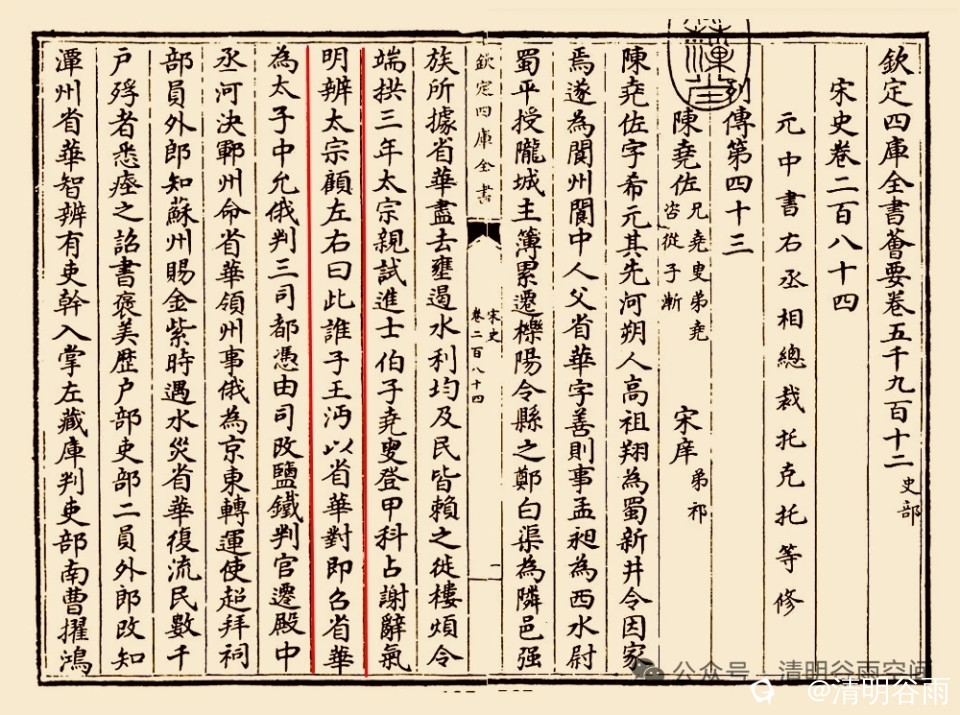 欽定四庫全書薈要卷五千九百十二 史部
宋史卷二百八十四
元中書右丞相總裁托克托等修
列傳第四十三
陳堯佐 兄堯叟 弟堯咨 從子漸 宋庠 弟祁
陳堯佐字希元其先河朔人髙祖翔為蜀新井令因家
焉遂為閬州閬中人父省華字善則事孟昶為西水尉
蜀平授隴城主簿累遷櫟陽令縣之鄭白渠為隣邑强
欽定四庫全書
宋史
卷二百八十四
一
族所據省華盡去壅遏水利均及民皆賴之徙樓煩令
端拱三年太宗親試進士伯子堯叟登甲科占謝辭氣
明辨太宗顧左右曰此誰子王沔以省華對即召省華
為太子中允俄判三司都憑由司改鹽鐵判官遷殿中
丞河決鄆州命省華領州事俄為京東轉運使超拜祠
部員外郎知蘇州賜金紫時遇水災省華復流民數千
户殍者悉瘞之詔書褒美歴户部吏部二員外郎改知
潭州省華智辨有吏幹入掌左藏庫判吏部南曹擢鴻
公众号 · 清明谷雨空间
@清明谷雨